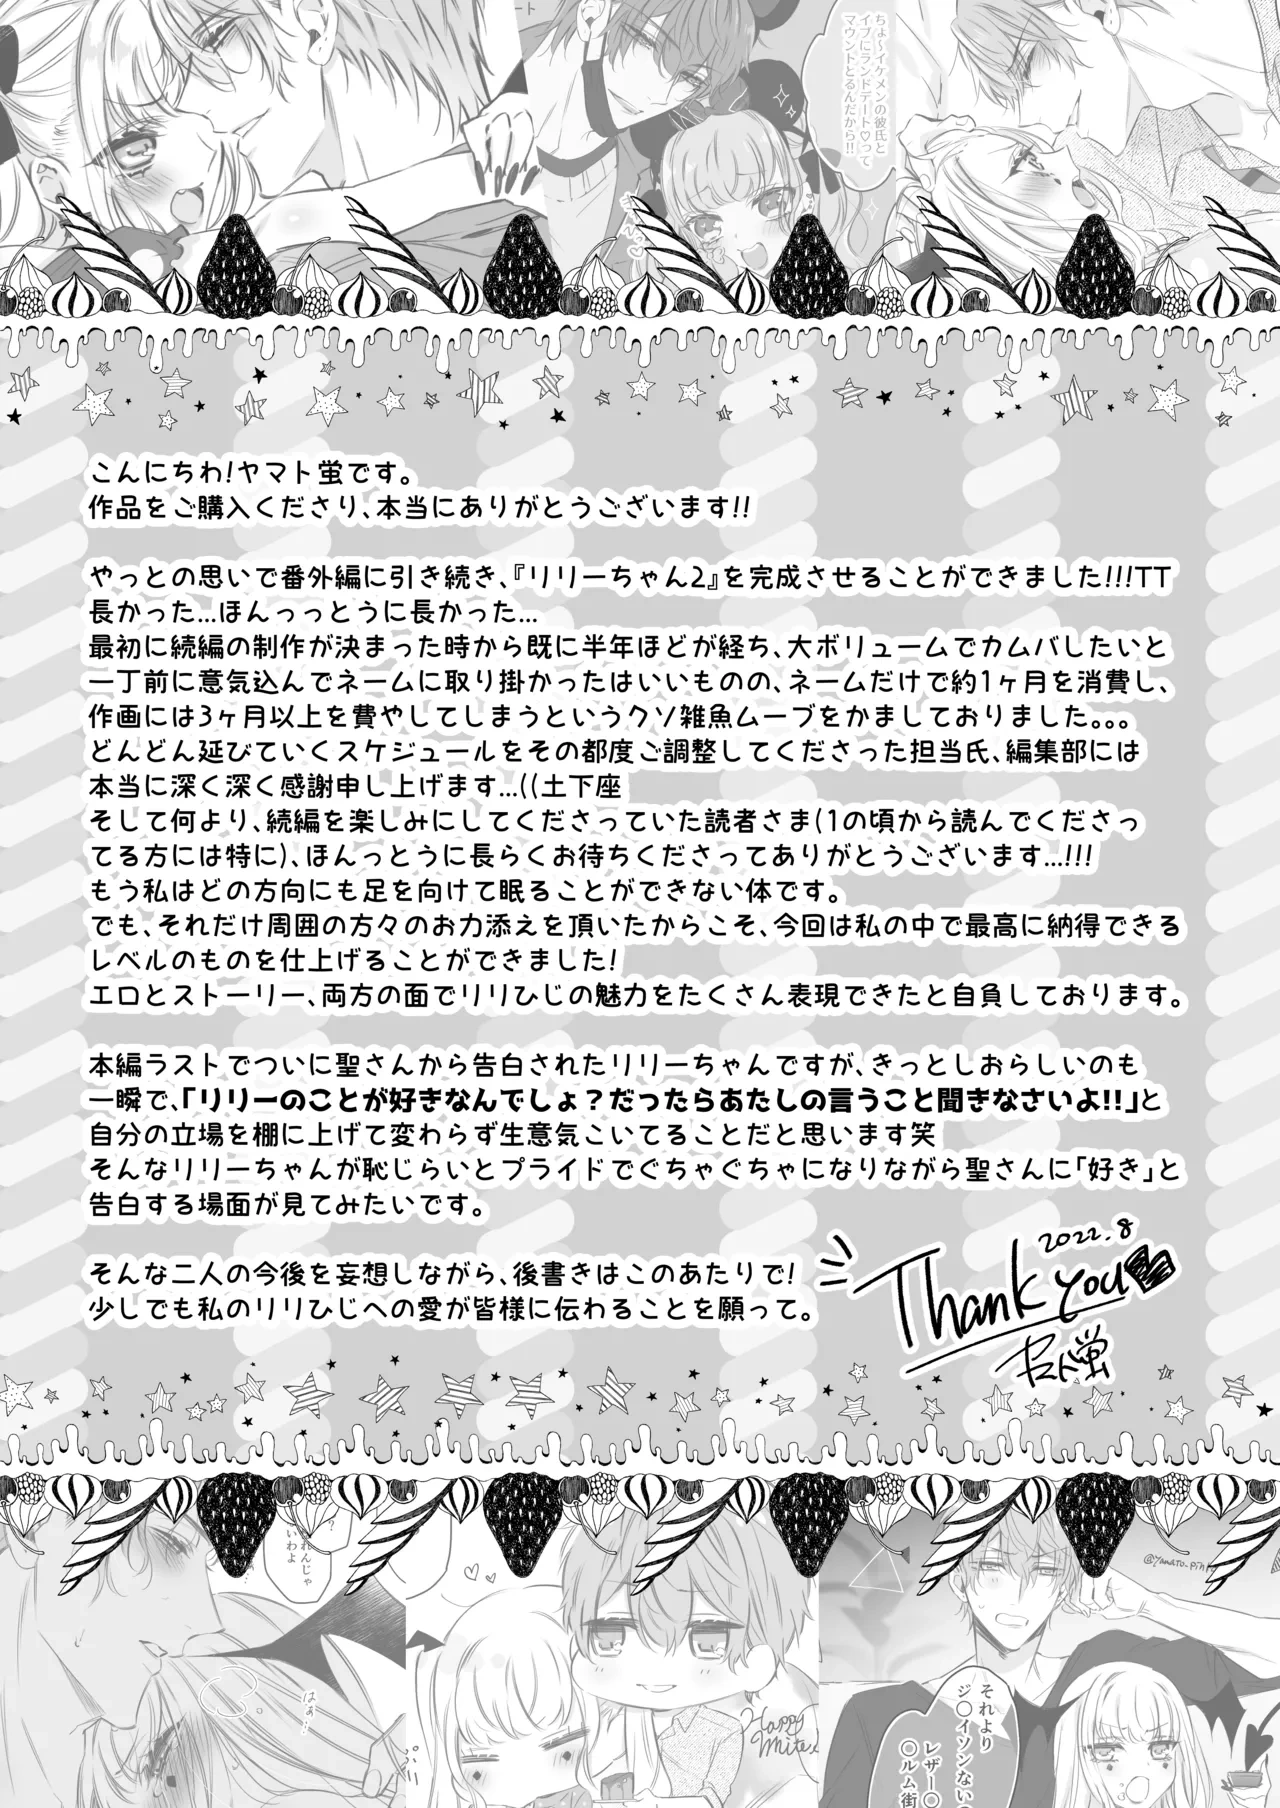 ート
ちょ～イケメンの彼氏と
イブにランドデート♡って
マウントとるんだから!!
こんにちわ!ヤマト蛍です。
作品をご購入くださり、本当にありがとうございます!!
やっとの思いで番外編に引き続き、『リリーちゃん2』を完成させることができました!!!TT
長かった...ほんっっとうに長かった...
最初に続編の制作が決まった時から既に半年ほどが経ち、大ボリュームでカムバしたいと
一丁前に意気込んでネームに取り掛かったはいいものの、ネームだけで約1ヶ月を消費し、
作画には3ヶ月以上を費やしてしまうというクソ雑魚ムーブをかましておりました。。。
どんどん延びていくスケジュールをその都度ご調整してくださった担当氏、編集部には
本当に深く深く感謝申し上げます...((土下座
そして何より、続編を楽しみにしてくださっていた読者さま(1の頃から読んでくださっ
てる方には特に)、ほんっとうに長らくお待ちくださってありがとうございます...!!!
もう私はどの方向にも足を向けて眠ることができない体です。
でも、それだけ周囲の方々のお力添えを頂いたからこそ、今回は私の中で最高に納得できる
レベルのものを仕上げることができました!
エロとストーリー、両方の面でリリひじの魅力をたくさん表現できたと自負しております。
本編ラストでついに聖さんから告白されたリリーちゃんですが、きっとしおらしいのも
一瞬で、「リリーのことが好きなんでしょ？だったらあたしの言うこと聞きなさいよ!!」と
自分の立場を棚に上げて変わらず生意気こいてることだと思います笑
そんなリリーちゃんが恥じらいとプライドでぐちゃぐちゃになりながら聖さんに「好き」と
告白する場面が見てみたいです。
そんな二人の今後を妄想しながら、後書きはこのあたりで!
少しでも私のリリひじへの愛が皆様に伝わることを願って。
2022.8
Thank you
ヤマト蛍
れんじゃ
いわよ
はぁ…
Happy
それより
ジ〇イソンない
レザー〇
〇ルム街